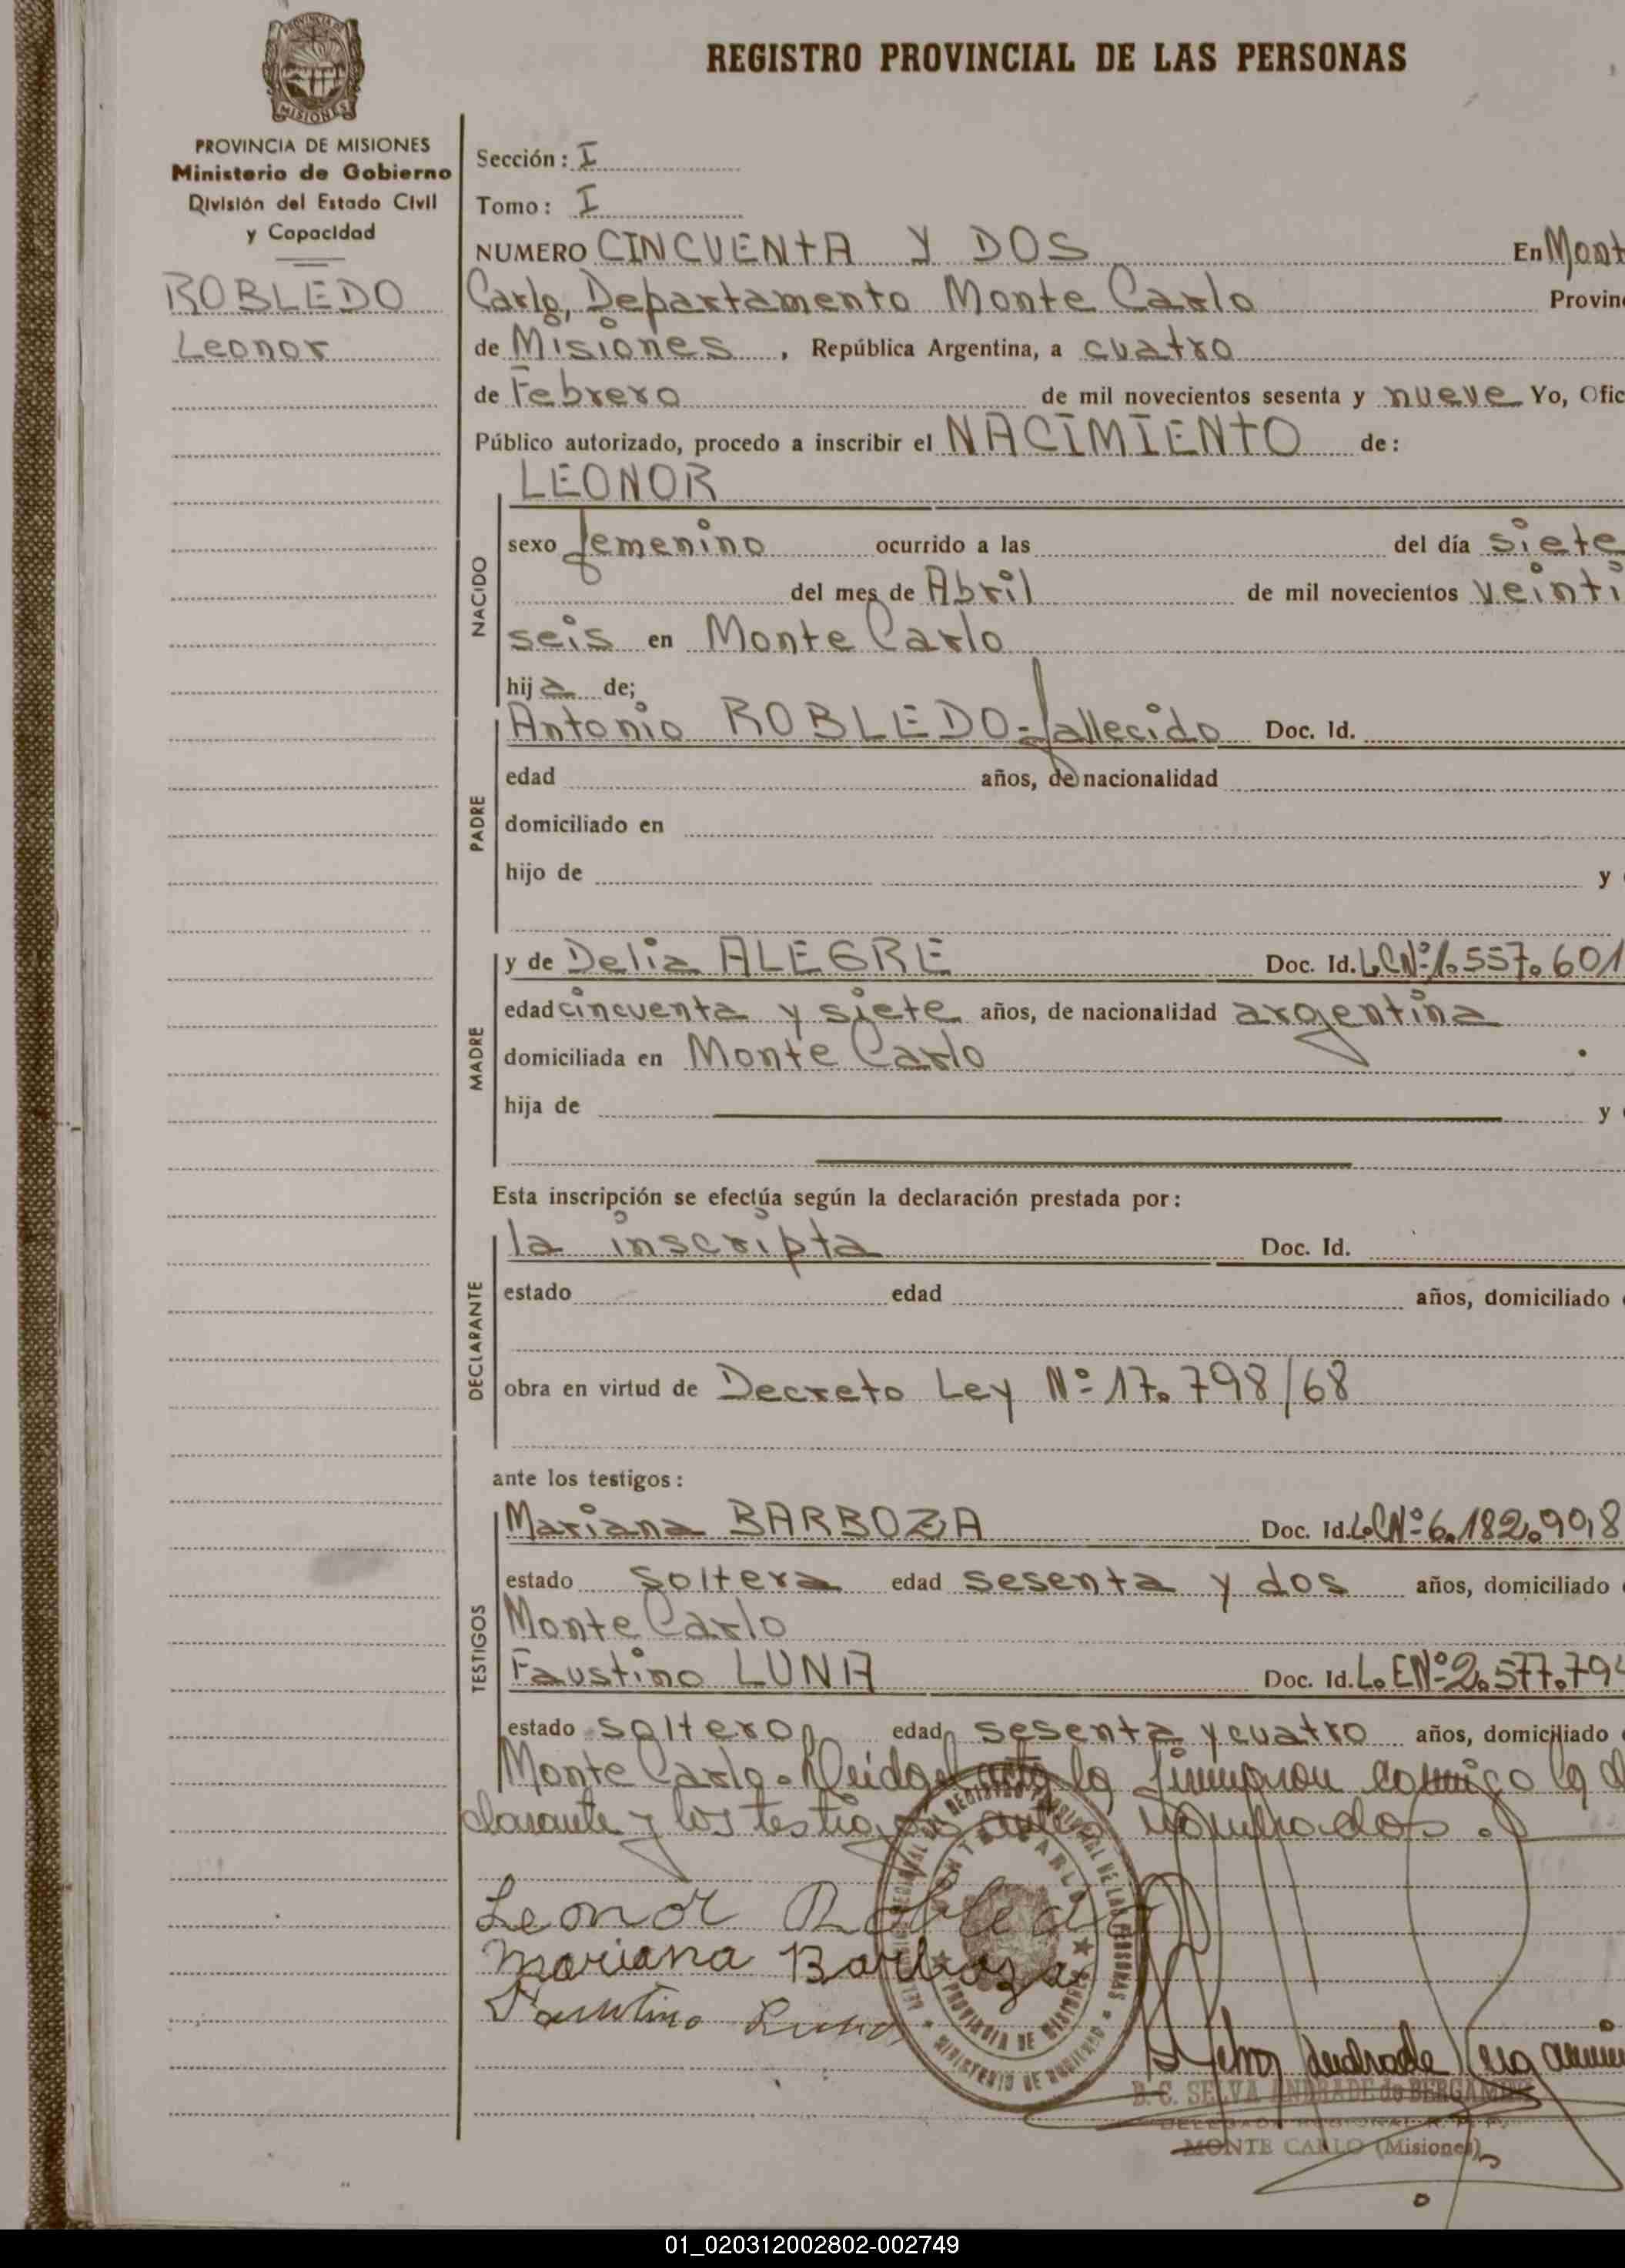 REGISTRO PROVINCIAL DE LAS PERSONAS
MISIONES
PROVINCIA DE MISIONES
Ministerio de Gobierno
División del Estado Civil
y Capacidad
ROBLEDO
Leonor
Sección: I
Tomo: I
NUMERO CINCUENTA Y DOS En Mont
Carlo, Departamento Monte Carlo Provin
de Misiones, República Argentina, a cuatro
de Febrero de mil novecientos sesenta y nueve Yo, Ofic
Público autorizado, procedo a inscribir el NACIMIENTO de:
NACIDO
LEONOR
sexo femenino ocurrido a las del día siete
del mes de Abril de mil novecientos veinti
seis en Monte Carlo
hija de;
PADRE
Antonio ROBLEDO-fallecido Doc. Id.
edad años, de nacionalidad
domiciliado en
hijo de y
MADRE
y de Delia ALEGRE Doc. Id. L.C.Nº 1.557.601
edad cincuenta y siete años, de nacionalidad argentina
domiciliada en Monte Carlo
hija de y
Esta inscripción se efectúa según la declaración prestada por:
DECLARANTE
la inscripta Doc. Id.
estado edad años, domiciliado
obra en virtud de Decreto Ley Nº 17.798/68
ante los testigos:
TESTIGOS
Mariana BARBOZA Doc. Id. L.C.Nº 6.182.908
estado soltera edad sesenta y dos años, domiciliado
Monte Carlo
Faustino LUNA Doc. Id. L.E.Nº 2.577.79
estado soltero edad sesenta y cuatro años, domiciliado
Monte Carlo. Leida el acta la firman conmigo la d
clarante y los testigos antes nombrados.
Leonor Robledo
Mariana Barboza
Faustino Luna
REGISTRO PROVINCIAL DE LAS PERSONAS
MONTE CARLO
PROVINCIA DE MISIONES
MINISTERIO DE GOBIERNO
D. C. SELVA ANDRADE de BERGAMINI
MONTE CARLO (Misiones)
01_020312002802-002749